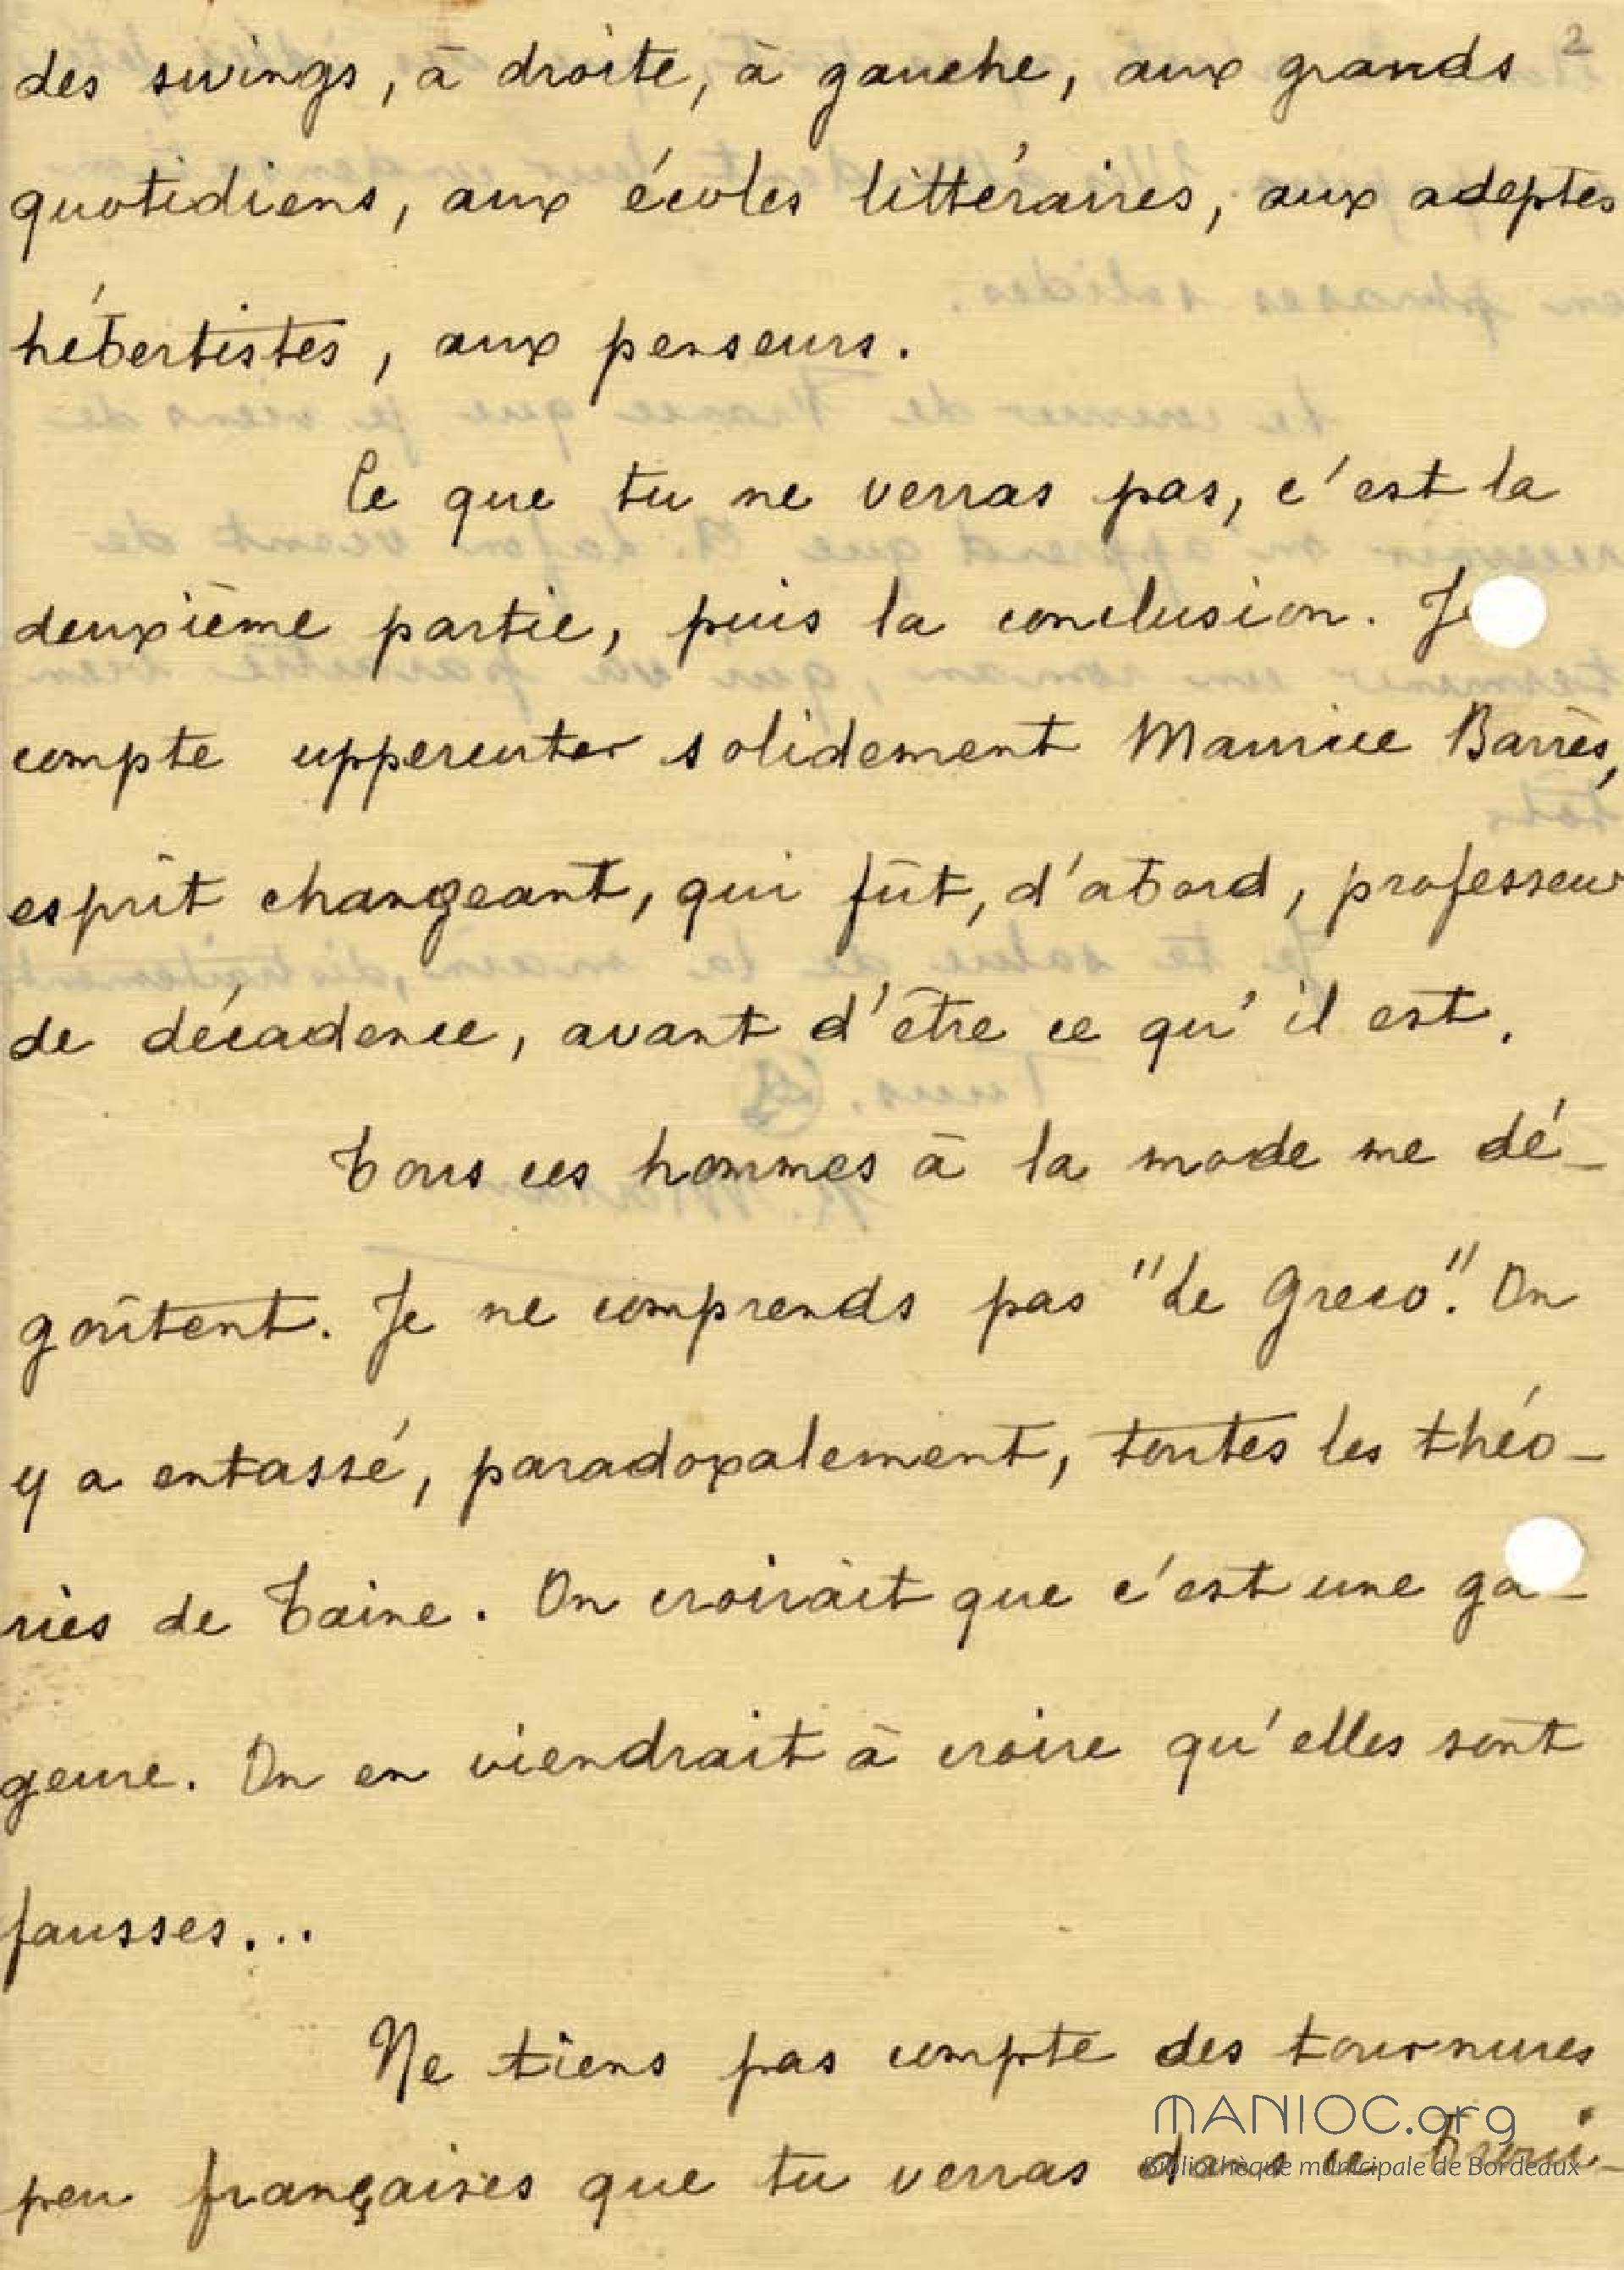 2
des swings, à droite, à gauche, aux grands
quotidiens, aux écoles littéraires, aux adeptes
hébertistes, aux penseurs.
Ce que tu ne verras pas, c'est la
deuxième partie, puis la conclusion. Je
compte uppercuter solidement Maurice Barrès,
esprit changeant, qui fût, d'abord, professeur
de décadence, avant d'être ce qu'il est.
Tous ces hommes à la mode me dé-
goûtent. Je ne comprends pas "Le Greco". On
y a entassé, paradoxalement, toutes les théo-
ries de Taine. On croirait que c'est une ga-
geure. On en viendrait à croire qu'elles sont
fausses...
Ne tiens pas compte des tournures
peu françaises que tu verras dans ce broui-
MANIOC.org
Bibliothèque municipale de Bordeaux